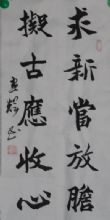 求新當放膽
擬古應收心